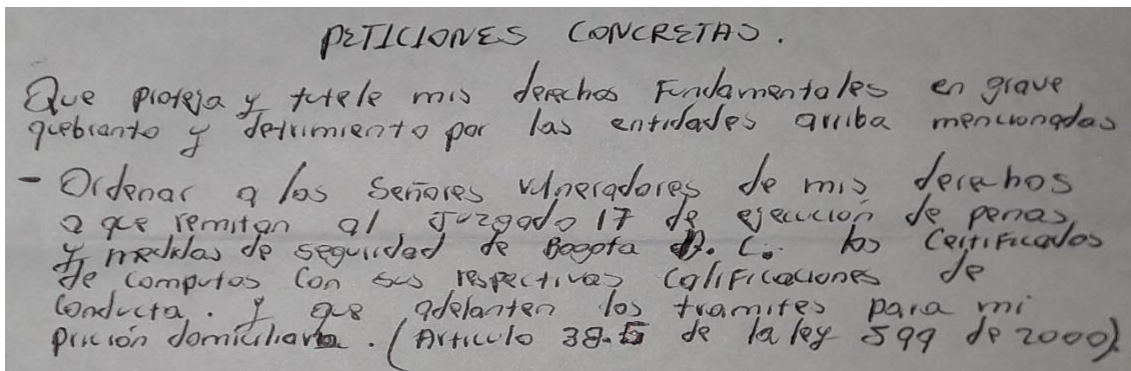 PETICIONES CONCRETAS.
Que proteja y tutele mis derechos Fundamentales en grave
quebranto y detrimiento por las entidades arriba mencionadas
- Ordenar a los Señores vulneradores de mis derechos
a que remitan al Juzgado 17 de ejecución de penas
y medidas de seguridad de Bogotá D. C.. los Certificados
de computos con sus respectivas calificaciones de
conducta. Y que adelanten los tramites para mi
prición domiciliaria. (Articulo 38.G de la ley 599 de 2000).